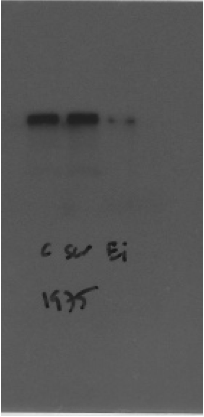 C Scr Ei
1935